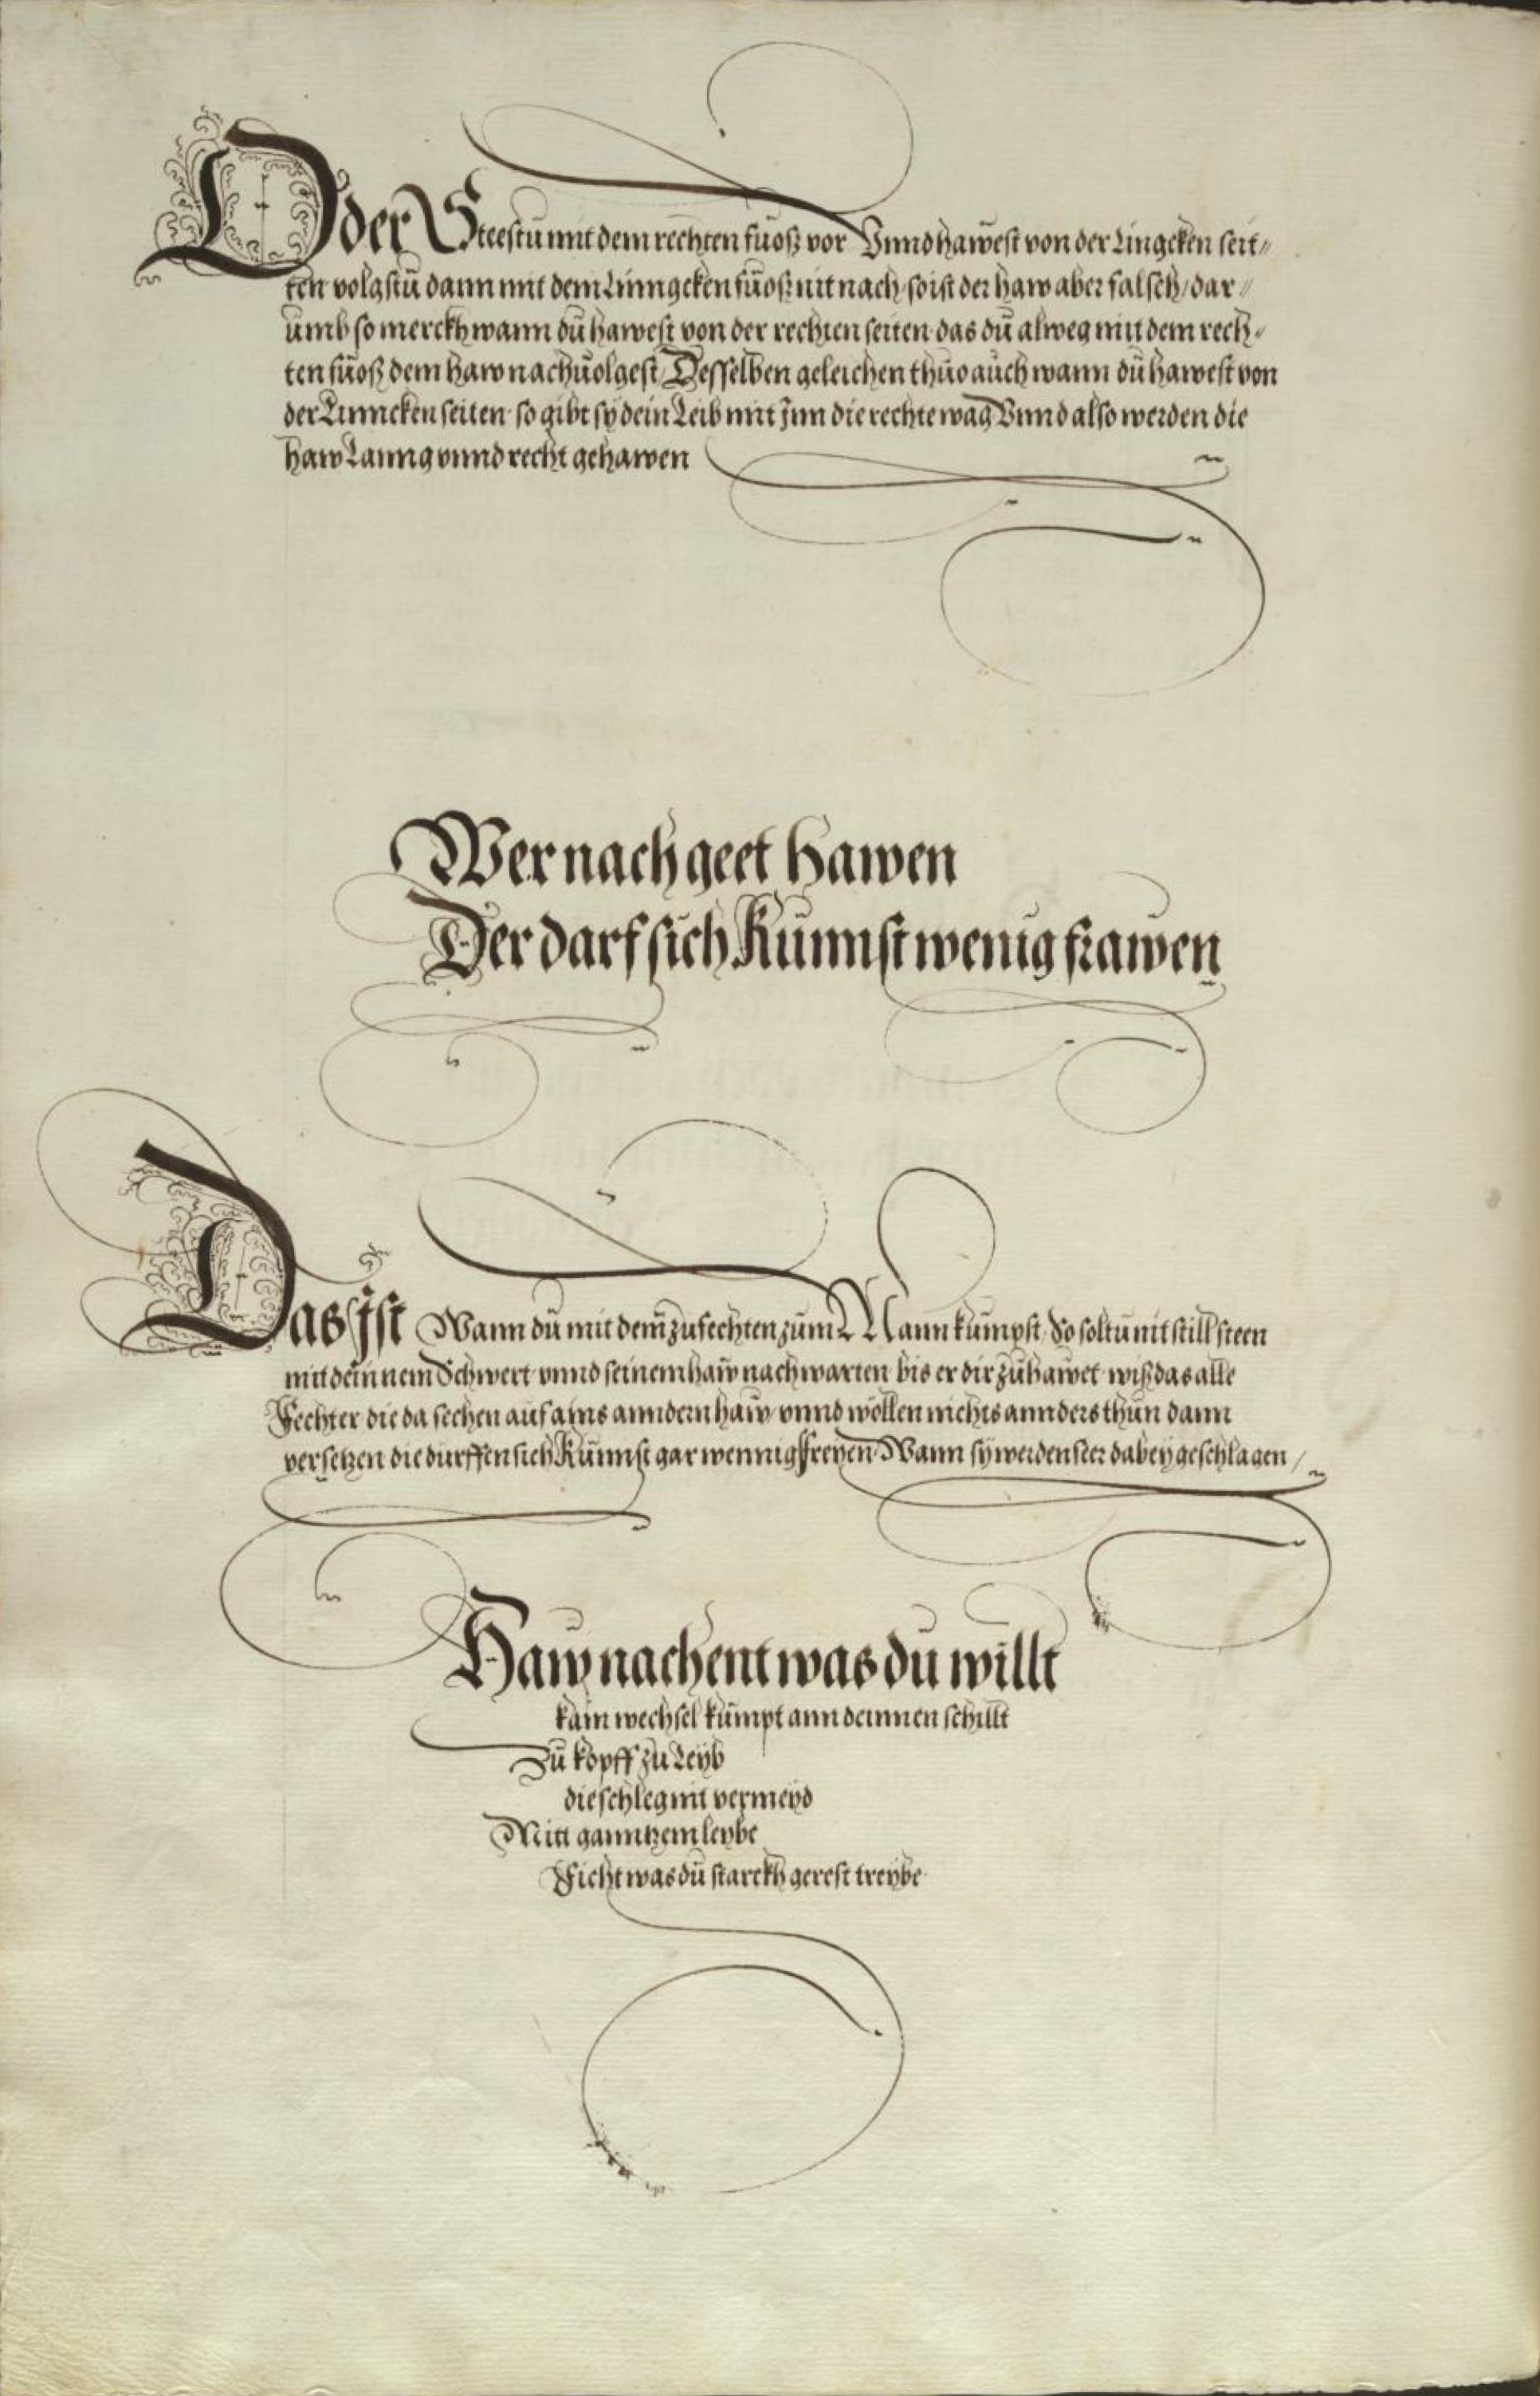 Oder Steestu mit dem rechten fuoß vor Vnnd hawest von der Lingcken seit⸗
ten volgstu dann mit dem Linngcken fuoß nit nach so ist der haw aber falsch / dar⸗
umb so merckh wann du hawest von der rechten seiten das du alweg mit dem rech⸗
ten fuoß dem haw nachuolgest / Desselben geleichen thuo auch wann du hawest von
der Linncken seiten so gibt sy dein Leib mit Inn die rechte wag Vnnd also werden die
haw Lanng vnnd recht gehawen
Wer nach geet hawen
Der darf sich Kunnst wenig frawen
Das Ist Wann du mit dem zufechten zum Mann kumpst / So soltu nit still steen
mit deinnem Schwert vnnd seinem haw nach warten bis er dir zu hawet wiß das alle
Fechter die da sechen auf ains anndern haw / vnnd wöllen nichts annders thun dann
versetzen die durffen sich Kunnst gar wennig freyen Wann sy werden seer dabey geschlagen /
Haw nachent was du willt
kain wechsel kumpt ann deinnen schillt
Zu kopff zu Leyb
die schleg nit vermeyd
Mitt ganntzem leybe
Ficht was du starckh gerest treybe